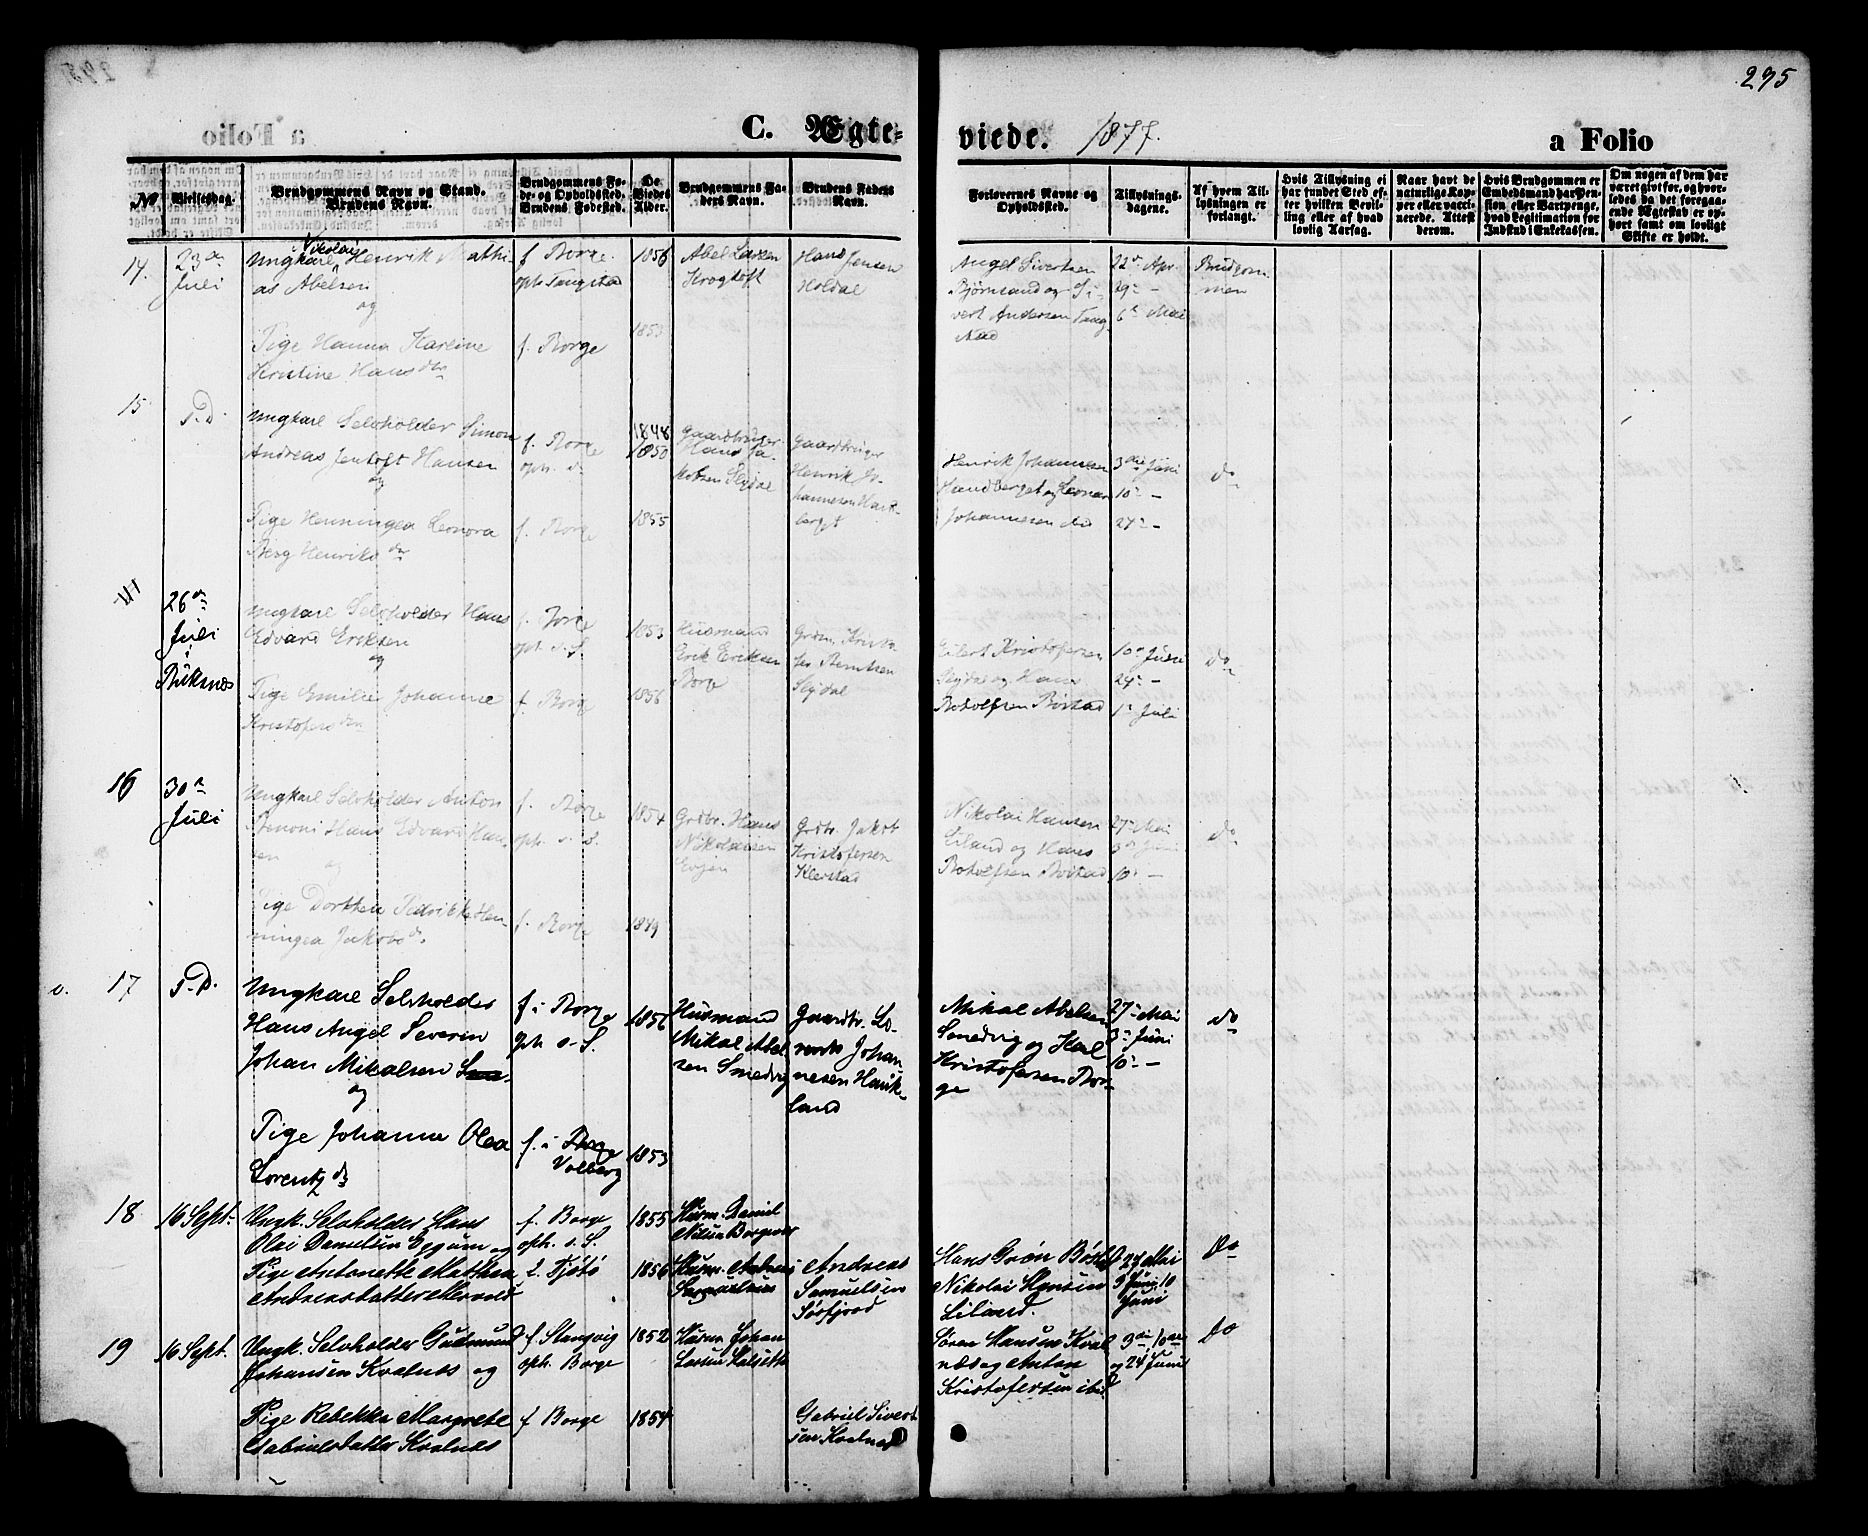 295
a Folio
C. Ægte=
viede. 1877.
a Folio
No
Vielsesdag.
Brudgommens Navn og Stand.
Brudens Navn.
Brudgommens Fø-
de- og Opholdssted.
Brudens Fødested.
De
Viedes
Alder.
Brudgommens Fa-
ders Navn.
Brudens Faders
Navn.
Forlovernes Navne og
Opholdssted.
Tillysnings-
dagene.
Af hvem Til-
lysningen er
forlangt.
Hvis Tillysning ei
har fundet Sted ef-
ter hvilken Bevil-
ling eller af hvad
lovlig Aarsag.
Naar havt de
naturlige Kop-
per eller vacci-
nerede. Attest
derom.
Hvis Brudgommen er
Embedsmand har Pen-
sion eller Vartpenge,
hvad Legitimation for
Indskud i Enkekassen.
Om nogen af dem har
været gift før, og hvor-
ledes da det foregaa-
ende Ægtestab er op-
hørt samt om lovligt
Skifte er holdt.
14.
23de
Juli
Nikolai
Ungkarl Henrik Mathi-
as Abelsen
og
Pige Hanna Kareine
Kristine Hansdtr
f. Borge
oph. Tangstad
f. Borge
1856
1853
Abel Larsen
Krogtoft
Hans Jensen
Holdal
Angel Sivertsen
Bjørnsand og Si-
vert Andersen Tang-
stad
22de Apr.
29de -
6te Mai
Brudgom-
men
15
S.D.
Ungkarl Selvholder Simon
Andreas Jentoft Hansen
og
Pige Henningea Leonora
Berg Henriksdtr
f. Borge
oph. do
f. Borge
1848
1850
1855
Gaardbruger
Hans Ja-
kobsen Slydal
Gaardbruger
Henrik Jo-
hannesen Hand-
berget
Henrik Johannesen
Handberget og Leonar
Johannesen do
3die Juni
10de -
24de -
do
26de
Juli
i
Buksnæs
Ungkarl Selvholder Hans
Edvard Eriksen
og
Pige Emilie Johanne
Kristofersdtr
f. Borge
oph. s. S.
f. Borge
1853
1856
Husmand
Erik Eriksen
Borge
Grdm. Kristo
fer Berntsen
Slydal
Eilert Kristofersen
Slydal og Hans
Rotolfsen Bøstad
10de Juni
24de -
1ste Juli
do
16
30te
Juli
Ungkarl Selvholder Anton
Benoni Hans Edvard Han-
sen
og
Pige Dorthea Fredrikke Hen-
ningea Jakobsd.
f. Borge
oph. s. S.
f. Borge
1854
1849
Grdbr. Hans
Nikolaisen
Evjen
Grdbr. Jakob
Kristofersen
Klerstad
Nikolai Hansen
Liland og Hans
Rotolfsen Bøstad
27de Mai
3die Juni
10de -
do
v. 17
S.D.
Ungkarl Selvholder
Hans Angel Severin
Johan Mikalsen
og
Pige Johanna Olea
Lorentzd.
f. i Borge
oph. s. S.
f. i Borge
Volberg
1856
1853
Husmand
Mikal Abel
sen Smedvig
Gaardbr. Lo-
rents Johan-
nesen Hauke-
land
Mikal Abelsen
Smedvig og Karl
Kristofersen Bor-
ge
27de Mai
3de Juni
10de -
do
18
16 Sept.
Ungk. Selvholder Hans
Olai Danielsen Eggum og
Pige Antonette Mathea
Andreasdatter
f. Borge
oph. s. S.
f. Tjøtø
1855
1856
Husm. Daniel
Nilsen Borgevær
Husm. Andreas
Samuelsen
Andreas
Samuelsen
Sørfjord
Hans Grøn Bøstad
Nikolai Hansen
Liland.
27 Mai
3 Juni, 10
Juni
Do
19
16 Sept.
Ungk. Selvholder Gudmund
Johansen Kvalnes og
Pige Rebekka Margrete
Gabrielsdatter Kvalnes
f. Stangvig
oph. Borge
f Borge
1852
1854
Husm Johan
Larsen Halseth
Gabriel Sivert
sen Kvalnes
Søren Hansen Kval
næs og Anton
Kristofersen ibid
3die, 10de
og 24 Juni
Do